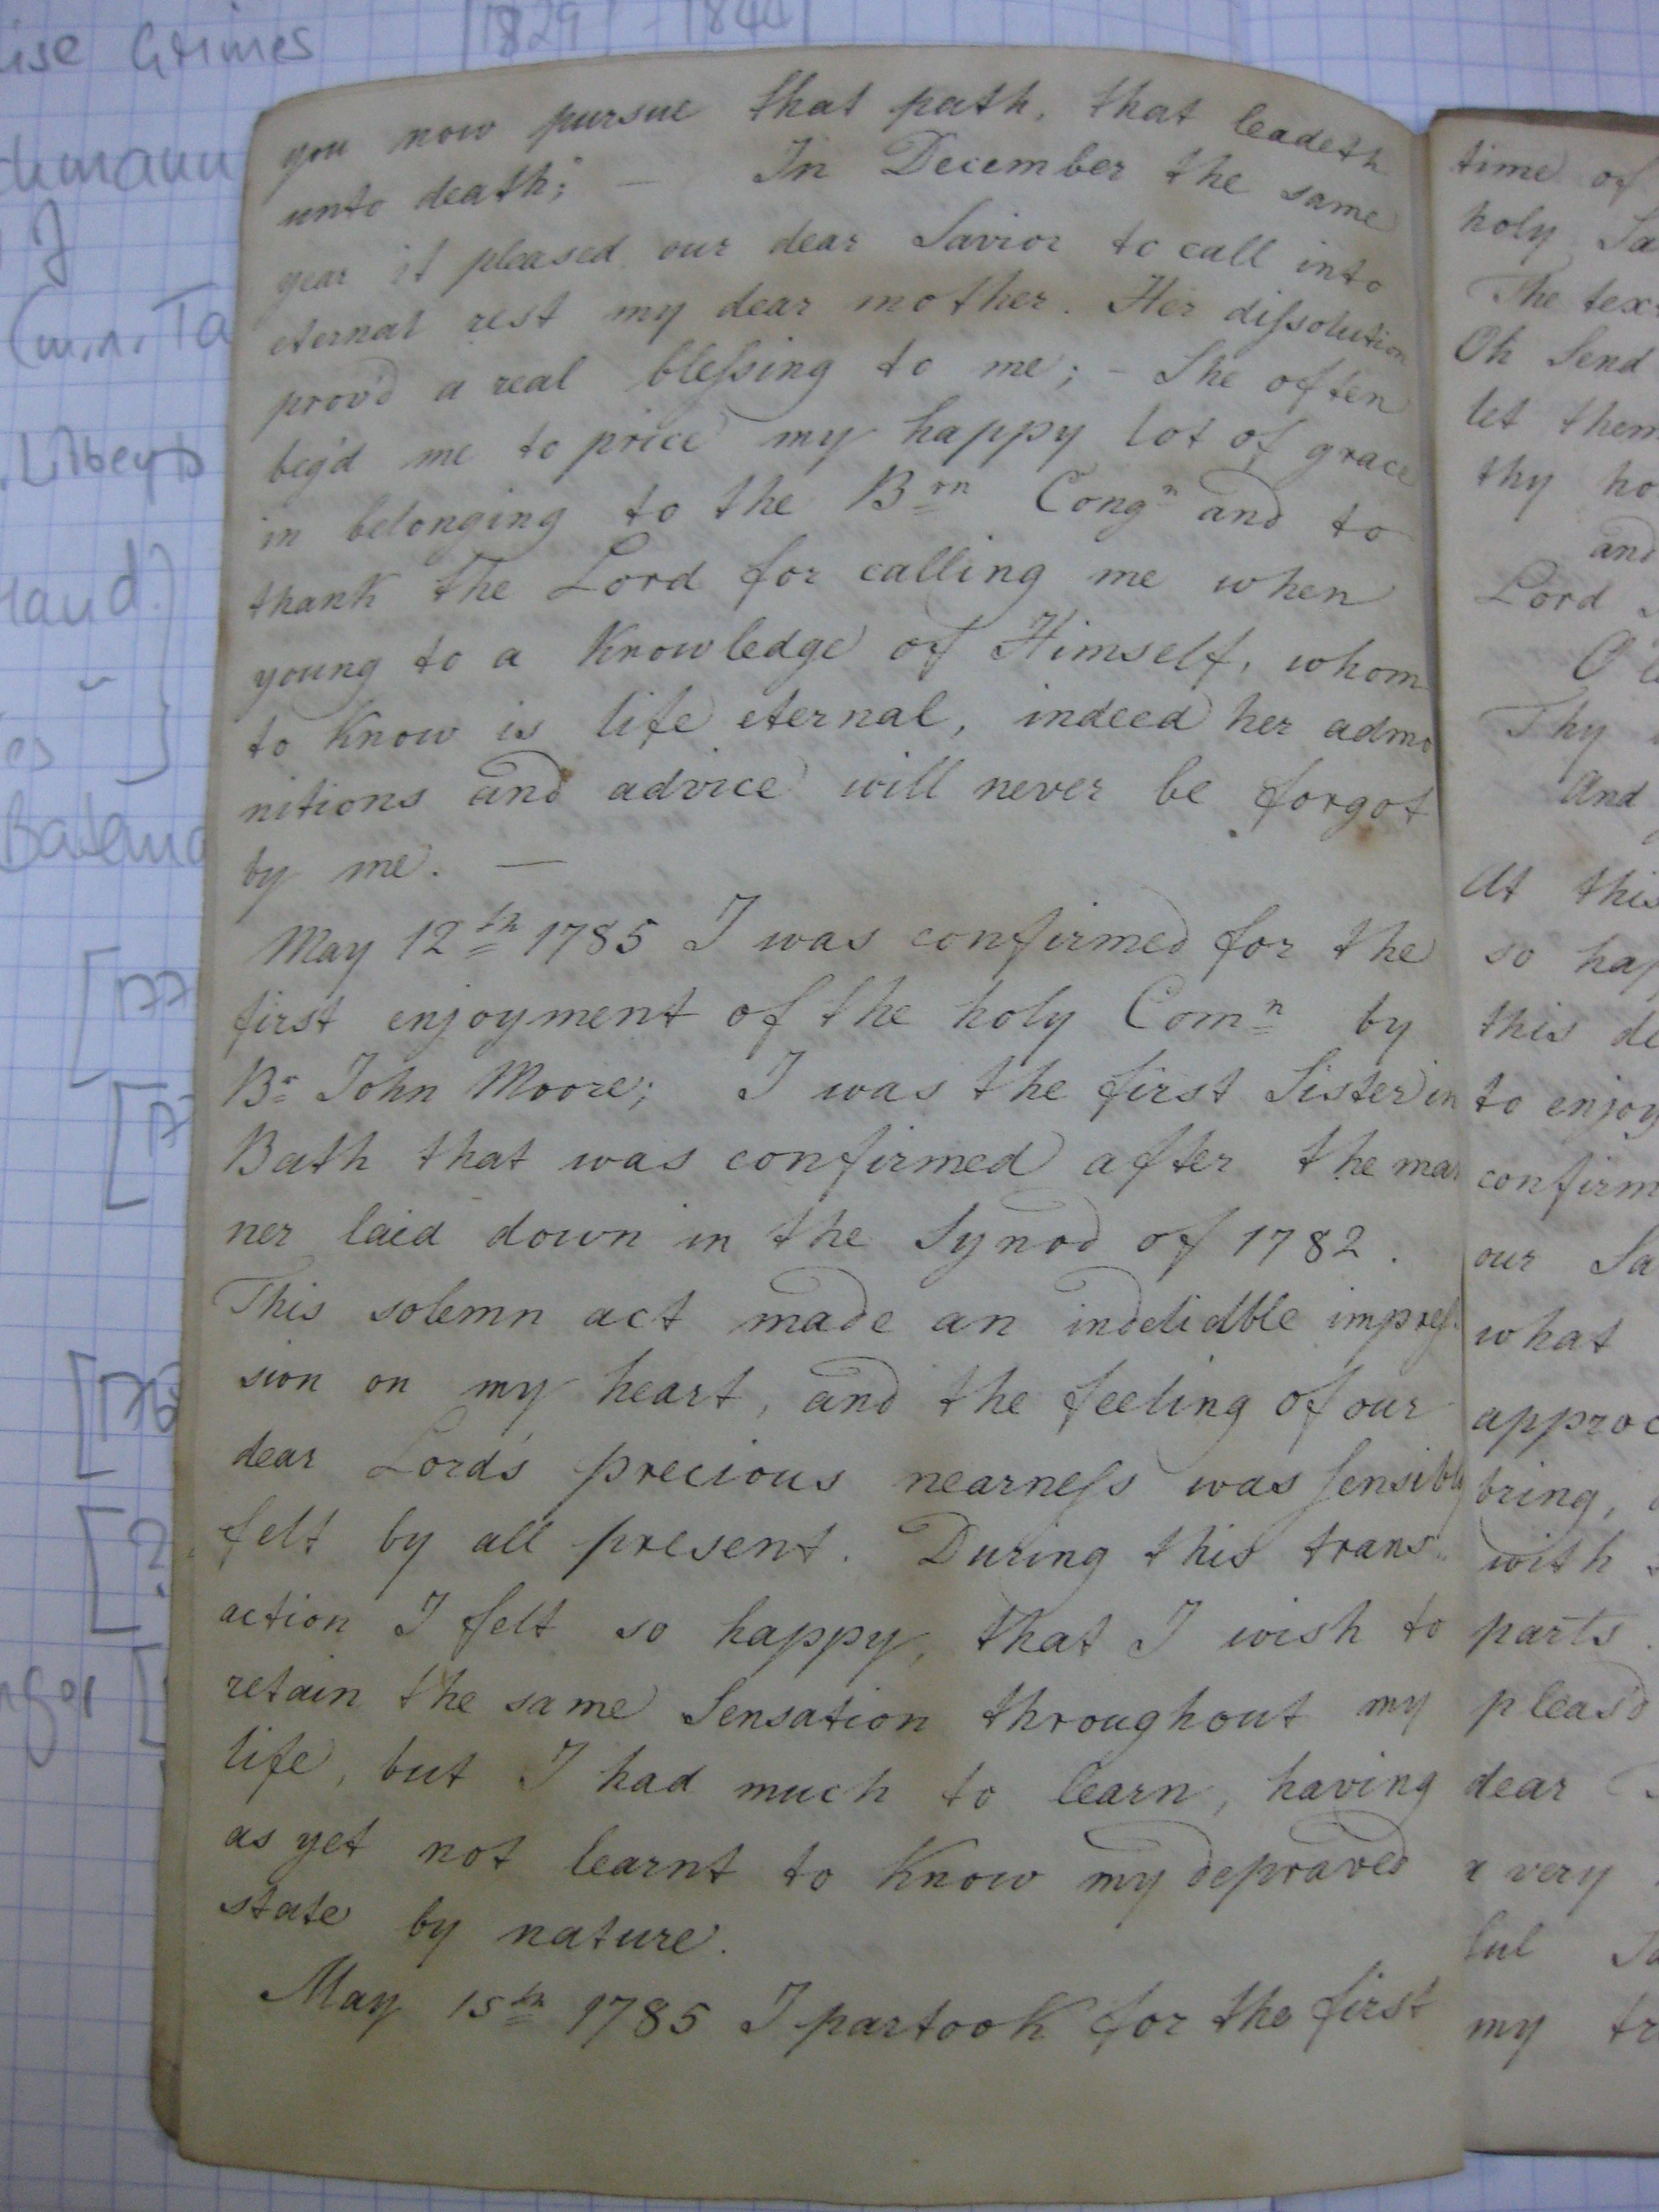 ise Grimes
1829 - 1844
you now pursue that path, that leadeth
unto death; — In December the same
year it pleased our dear Savior to call into
eternal rest my dear mother. Her dissolution
prov'd a real blessing to me; - She often
beg'd me to price my happy lot of grace
in belonging to the Brn Congn and to
thank the Lord for calling me when
young to a Knowledge of Himself, whom
to Know is life eternal, indeed her admo
nitions and advice will never be forgot
by me. —
May 12th 1785 I was confirmed for the
first enjoyment of the holy Comn by
Br John Moore; I was the first Sister in
Bath that was confirmed after the man
ner laid down in the Synod of 1782.
This solemn act made an indelidble impres-
sion on my heart, and the feeling of our
dear Lord's precious nearness was sensibly
felt by all present. During this trans-
action I felt so happy, that I wish to
retain the same Sensation throughout my
life, but I had much to learn, having
as yet not learnt to Know my depraved
state by nature.
May 15th 1785 I partook for the first
time of
holy Sa
The tex
Oh Send
let them
thy ho
and
Lord
O
Thy
And
At this
so hap
this de
to enjoy
confirm
our Sa
what
approc
bring,
with
parts.
pleas'd
dear
a very
ful
my tr